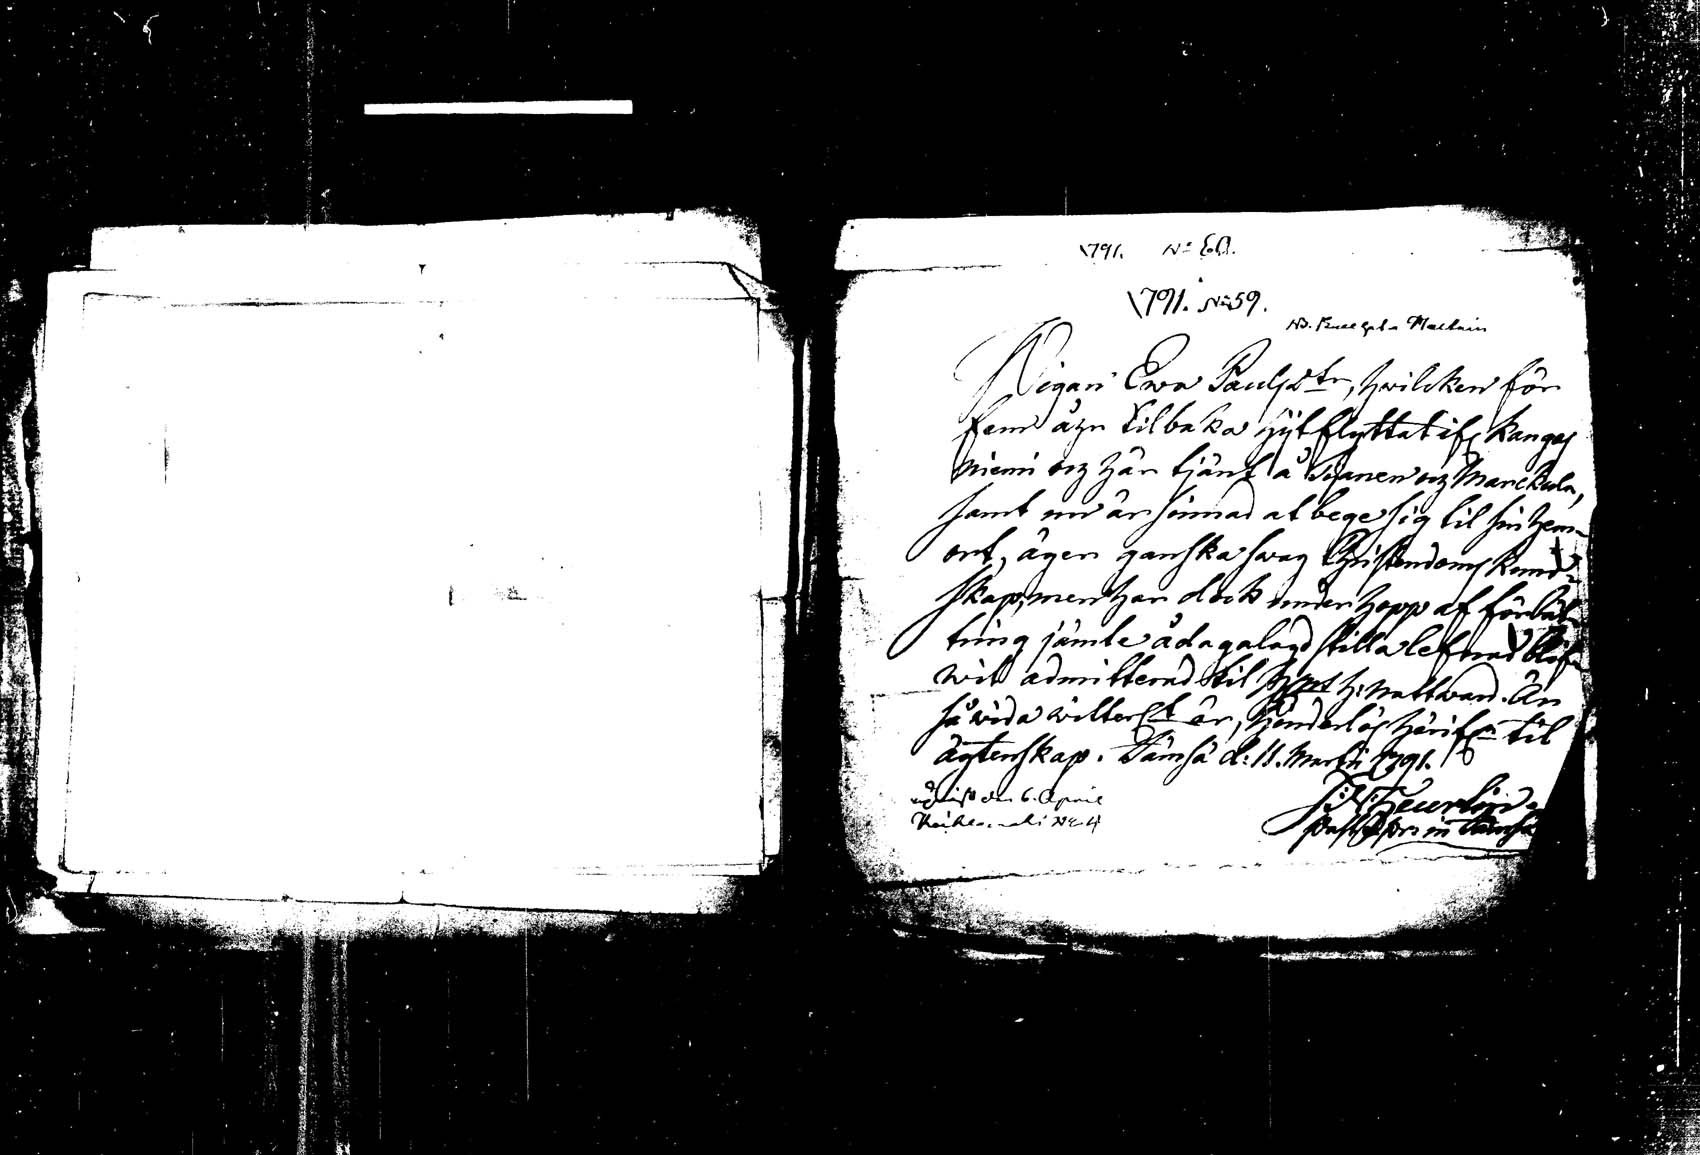 1791. No 60.
1791. No 59.
Pigan Ewa Paulsdtr, hwilcken för
fem åhr tilbaka hijt flyttat ifr Kangas
niemi och här tjänt å Soanen och Marckula,
samt nu är sinnad at bege sig til sin hem
ort, äger ganska swag Christendoms kund-
skap, men har dock under hopp af förbät
tring jämte ådagalagd stilla lefnad blif
wit admitterad til Hrns H: Nattward. Än
så wida witterligt är, hinderlös härifrn til
ägtenskap. Jämsä d: 11. Martii 1791.
den 6. April
No 4